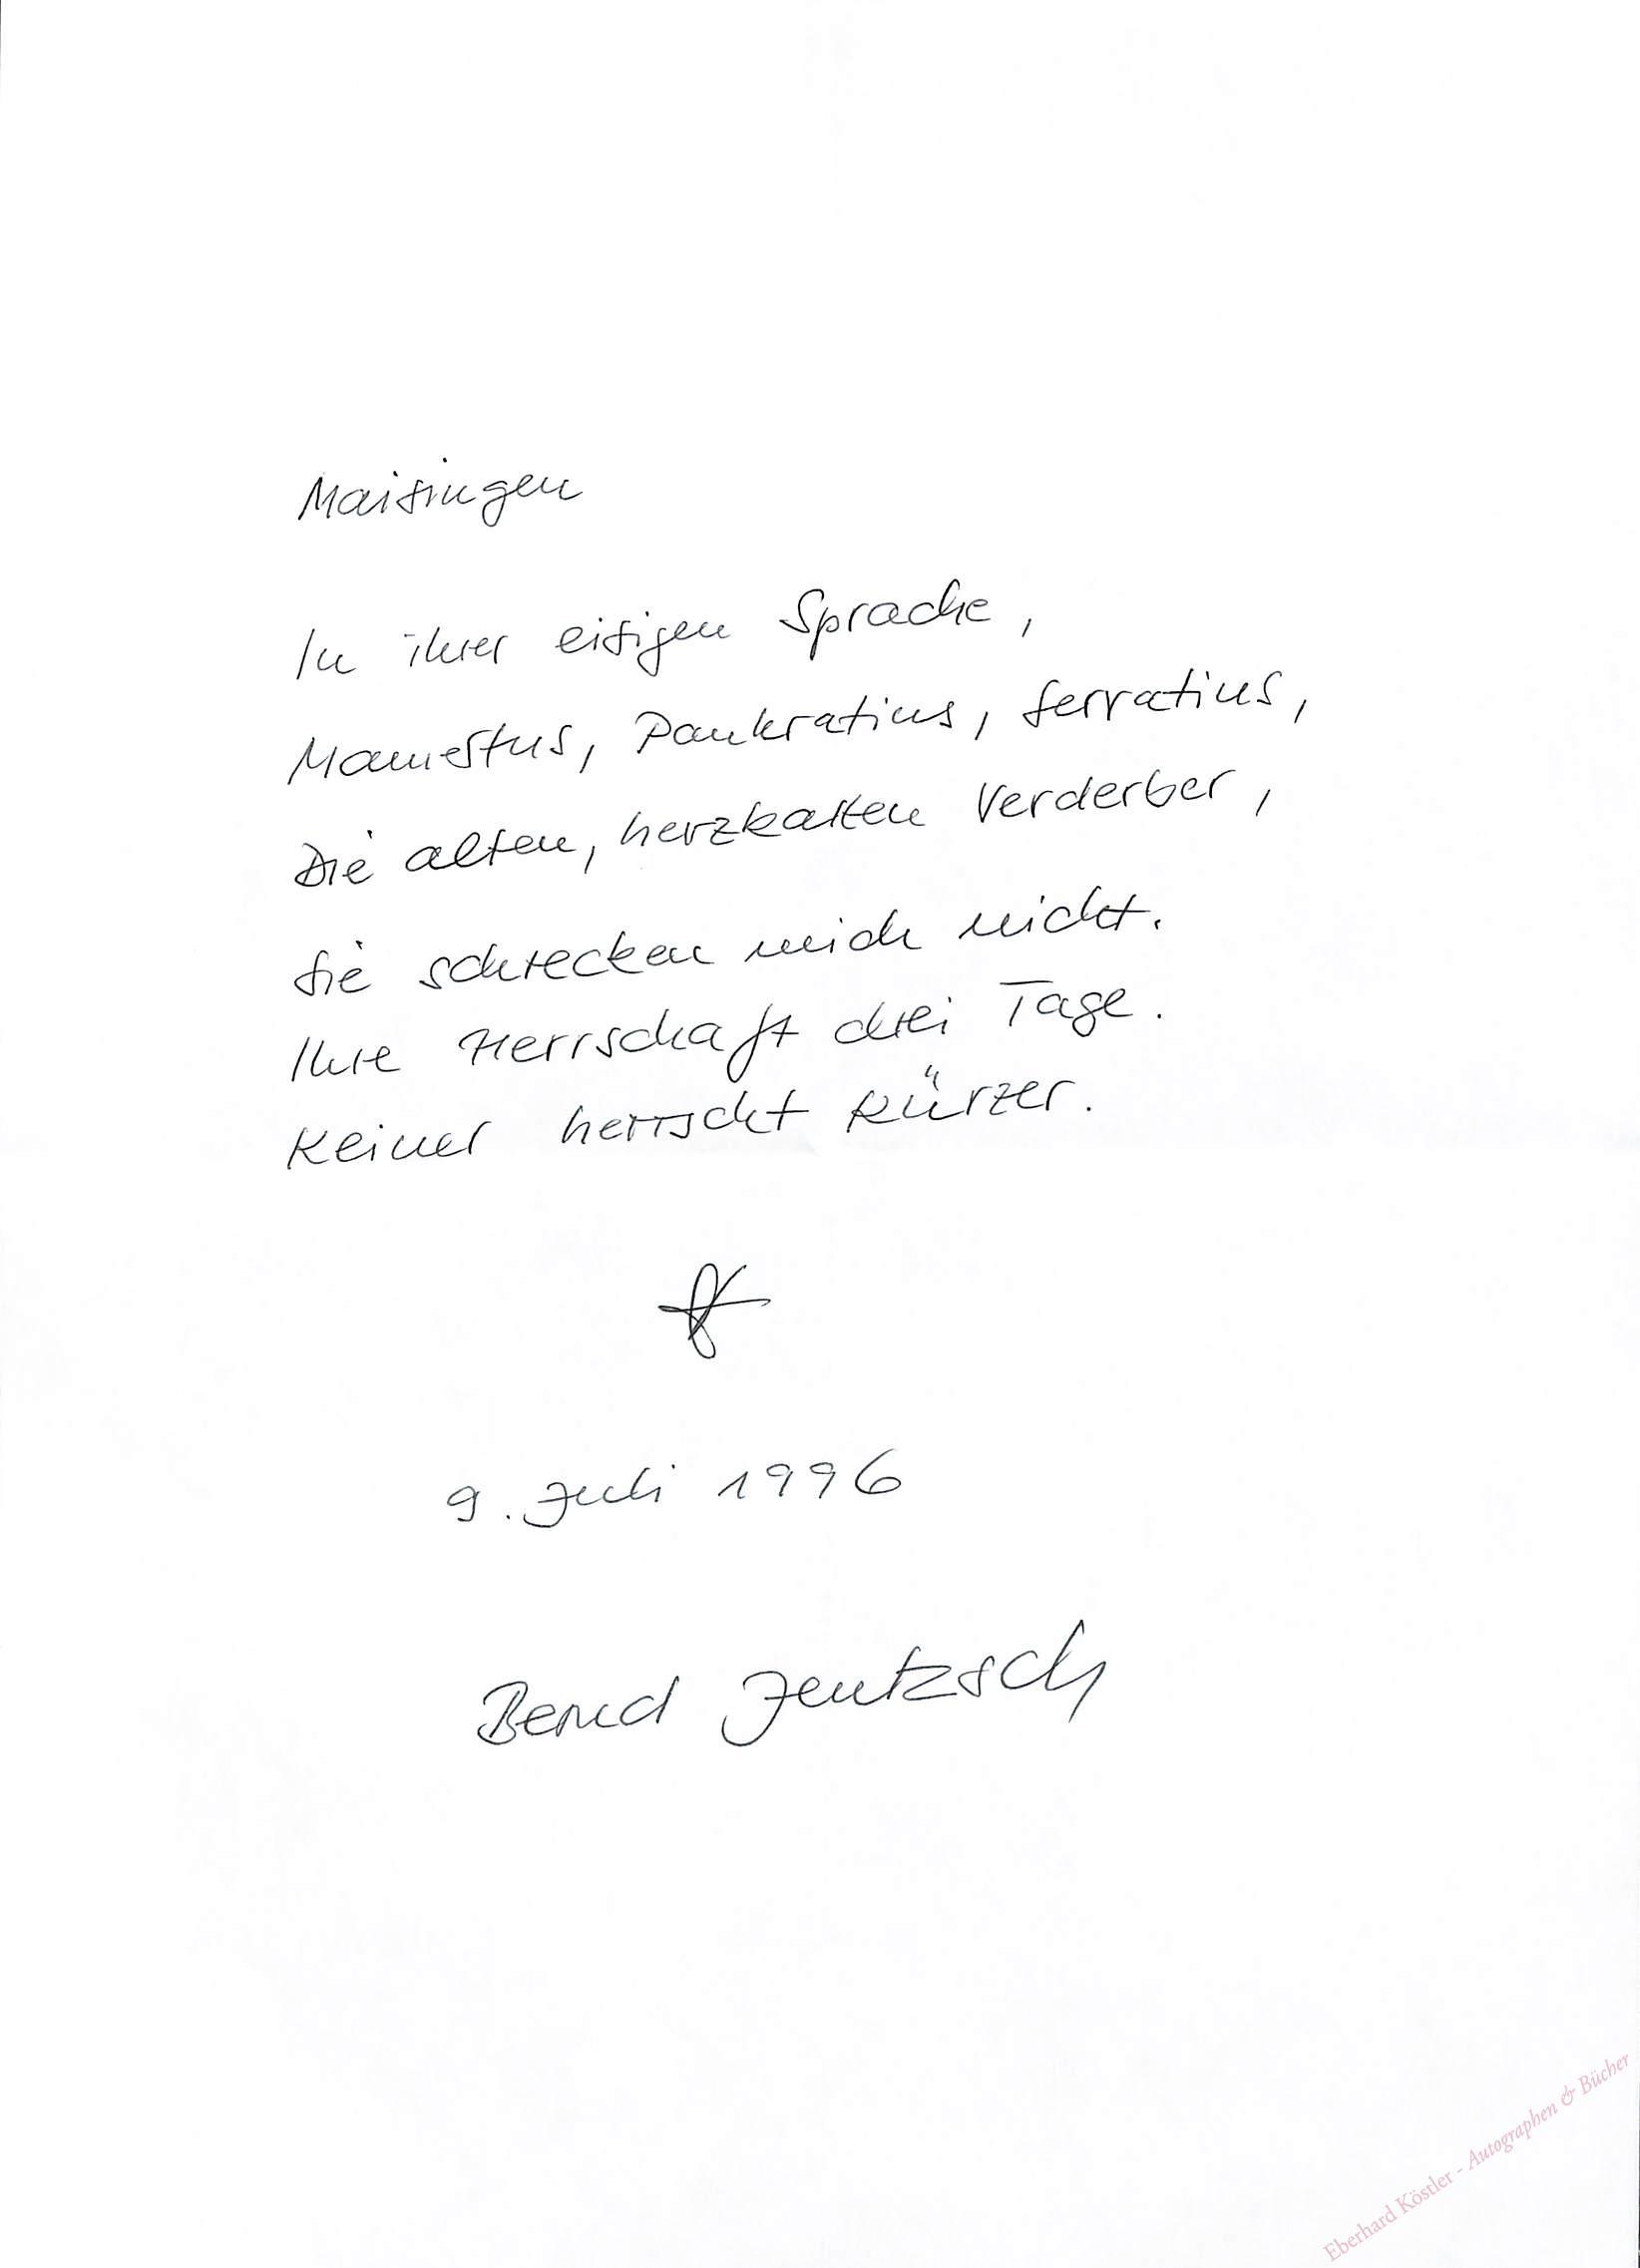 Maisingen
In ihrer eisigen Sprache,
Mamertus, Pankratius, Servatius,
Die alten, herzkalten Verderber,
Sie schrecken mich nicht.
Ihre Herrschaft drei Tage.
Keiner herrscht kürzer.
9. Juli 1996
Bernd Jentzsch
Eberhard Köstler - Autographen & Bücher